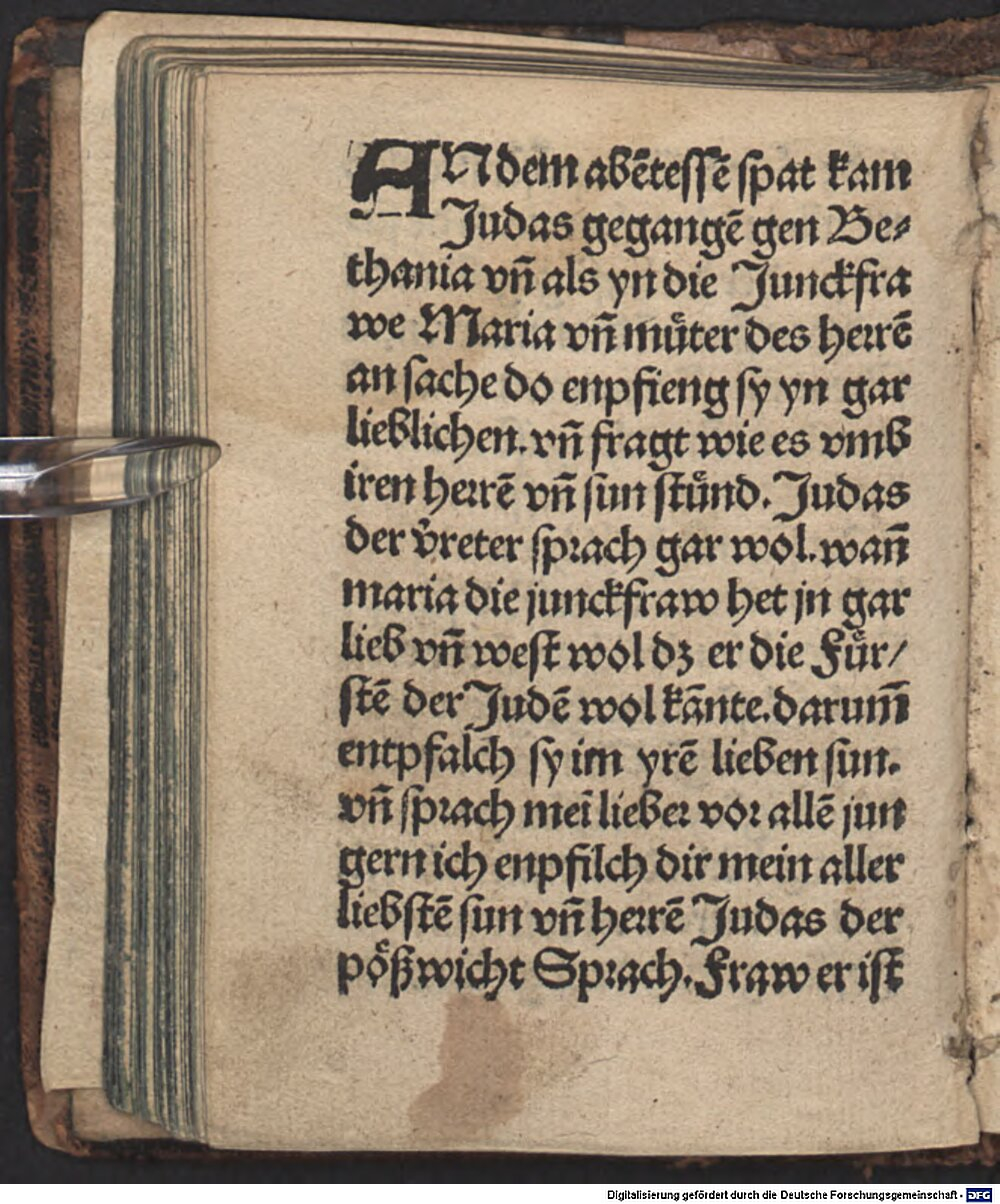 ANdem abētessē spat kam
Judas gegangē gen Be⸗
thania vn̄ als yn die Junckfra
we Maria vn̄ muͤter des herrē
an sache do enpfieng sy yn gar
lieblichen. vn̄ fragt wie es vmb
iren herrē vn̄ sun stuͤnd. Judas
der v̄reter sprach gar wol. wan̄
maria die junckfraw het jn gar
lieb vn̄ west wol dz er die Fuͤr/
stē der Judē wol kānte. darum̄
entpfalch sy im yrē lieben sun.
vn̄ sprach meī lieber vor allē jun
gern ich enpfilch dir mein aller
liebstē sun vn̄ herrē Judas der
poͤßwicht Sprach. Fraw er ist
Digitalisierung gefördert durch die Deutsche Forschungsgemeinschaft - DFG